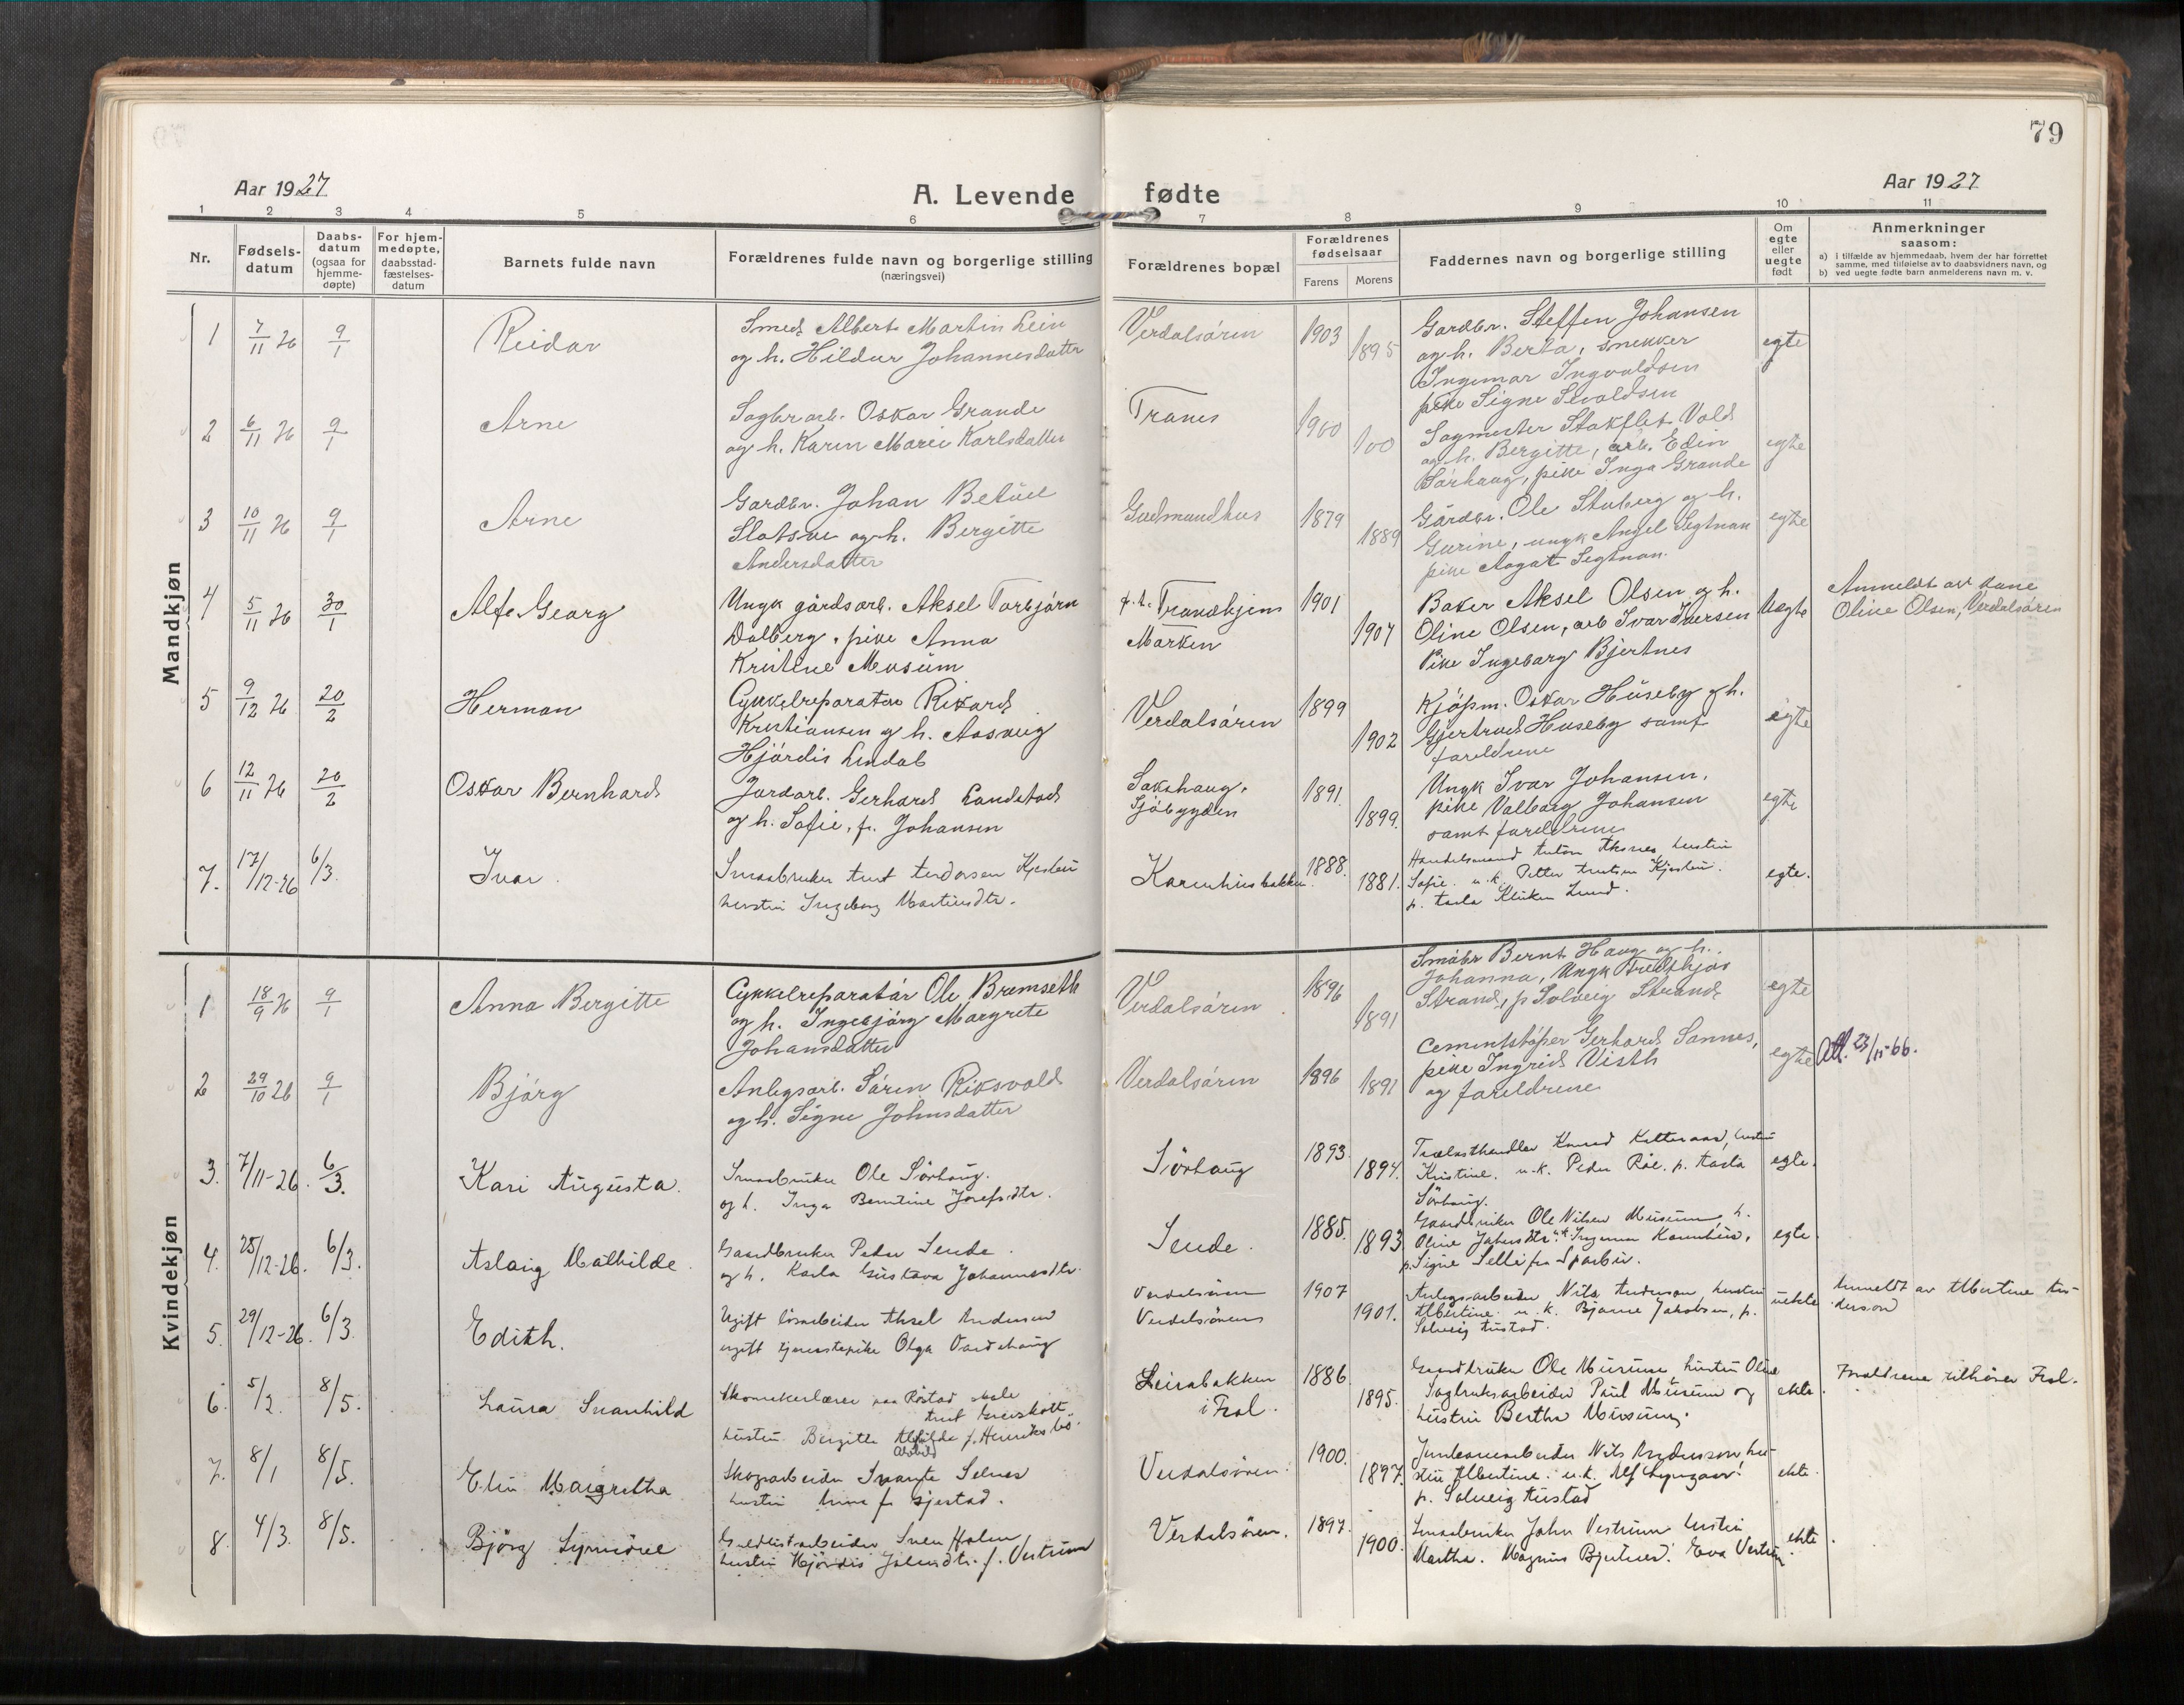 79
Aar 1927
A. Levende fødte
Aar 1927
1 2 3 4 5 6 7 8 9 10 11
Nr.
Fødsels-
datum
Daabs-
datum
(ogsaa for
hjemme-
døpte)
For hjem-
medøpte,
daabsstad-
fæstelses-
datum
Barnets fulde navn
Forældrenes fulde navn og borgerlige stilling
(næringsvei)
Forældrenes bopæl
Forældrenes
fødselsaar
Farens
Morens
Faddernes navn og borgerlige stilling
Om
egte
eller
uegte
født
Anmerkninger
saasom:
a) i tilfælde av hjemmedaab, hvem der har forrettet
samme, med tilføielse av to daabsvidners navn, og
b) ved uegte fødte barn anmelderens navn m. v.
Mandkjøn
1 7/11 26 9/1 Reidar
Smed Albert Martin Lein
og h. Hildur Johannesdatter
Verdalsøren 1903 1895
Gardbr. Steffen Johansen
og h. Berta, snekker
Ingemar Ingvaldsen
pike Signe Sevaldsen
egte
2 6/11 26 9/1 Arne
Sagbrarb. Oskar Grande
og h. Karen Marie Karlsdatter
Tranes 1900 100
Sagmester Stokflet Vold
og h. Bergitte, arb. Edin
Sørhaug, pike Inga Grande
egte
3 10/11 26 9/1 Arne
Gardbr. Johan Betuel
Slotsve og h. Bergitte
Andersdatter
Gudmundhus 1879 1889
Gårdbr. Ole Stuberg og h.
Gurine, ungk Angel Segtnan
pike Aagot Segtnan.
egte
4 5/11 26 30/1 Alf Georg
Ungk gårdsarb. Aksel Torbjørn
Dalberg, pike Anna
Kristine Musum
p.t. Trondhjem
Marken
1901 1907
Baker Aksel Olsen og h.
Oline Olsen, arb Ivar Iversen
Pike Ingeborg Bjertnes
Uegte
Anmeldt av kone
Oline Olsen, Verdalsøren
5 9/12 26 20/2 Herman
Cykkelreparatør Rikard
Kristiansen og h. Aasveig
Hjørdis Lindal
Verdalsøren 1899 1902
Kjøpm. Oskar Huseby og h.
Gjertrud Huseby samt
foreldrene
egte
6 12/11 26 20/2 Oskar Bernhard
Jordarb. Gerhard Landstad
og h. Sofie, f. Johansen
Sakshaug,
Sjøbygden
1891. 1899.
Ungk Ivar Johansen,
pike Valborg Johansen
samt foreldrene
egte
7. 17/12-26 6/3. Ivar.
Smaabruker Arnt Andorsen
hustru Ingeborg Martinsdtr.
Karenhusbakken. 1888. 1881.
Handelsmand Anton Aksnes, hustru
Sofie. u.k. Petter Arntsen
p.
egte.
Kvindekjøn
1 18/9 26 9/1 Anna Bergitte
Cykkelreparatør Ole Bremseth
og h. Ingebjørg Margrete
Johansdatter
Verdalsøren 1896 1891
Småbr Bernt Haug og h.
Johanna, Ungk Fredthjov
Strand, p Solveig Strand
egte
2 29/10 26 9/1 Bjørg
Anlegsarb. Søren Riksvold
og h. Signe Johnsdatter
Verdalsøren 1896 1891
Cementstøper Gerhard Sannes,
pike Ingrid Visth
og foreldrene
egte
Att. 23/11-66.
3. 7/11-26. 6/3. Kari Augusta.
Smaabruker Ole Sørhaug.
og h. Inga Berntine Josefsdtr.
Sørhaug 1893. 1894.
Trælasthandler Konrad, hustru
Kristine. u.k. Peder Röe. p.
Sørhaug.
egte.
4. 25/12-26. 6/3. Aslaug Mathilde.
Gaardbruker Peder Sende.
og h. Karla Gustava Johannesdtr.
Sende. 1885. 1893
Gaardbruker Ole Nilsen Musum, h.
Oline
p. Signe Selli fra Sparbu.
egte.
5. 29/12-26. 6/3. Edith.
Ugift løsarbeider Aksel Andersen
ugift tjenestepike Olga
Verdalsøren
Verdalsøren
1907 1901.
Anlegsarbeider Nils Anderson, hustru
Albertine. u.k. Bjarne Jakobsen, p.
Solveig Austad.
uekte
Anmeldt av Albertine An-
derson
6. 5/2. 8/5. Laura Svanhild
Skomakerlærer paa Røstad skole
Arnt
hustru Bergitte
Leirabakken
i Frol.
1886. 1895.
Gaardbruker Ole Musum hustru Oline
Sagbruksarbeider Paul Musum og
hustru Bertha Musum.
ekte.
Foreldrene tilhører Frol.
7. 8/1 8/5. Elin Margretha
Skogsarbeider Svante Selnes
hustru Anna f. Gjestad.
Verdalsøren. 1900. 1897.
Jernbanearbeider Nils Anderson hu-
stru Albertine. u.k. Alf
p. Solveig Austad
ekte.
8. 4/3. 8/5. Bjørg Synnøve
Guldlistarbeider Sven Holm
hustru Hjørdis Johnsdtr. f. Vestrum
Verdalsøren. 1897. 1900.
Smaabruker John Vestrum hustru
Martha. Magnus Bjertnes. Eva Vestrum
ekte.